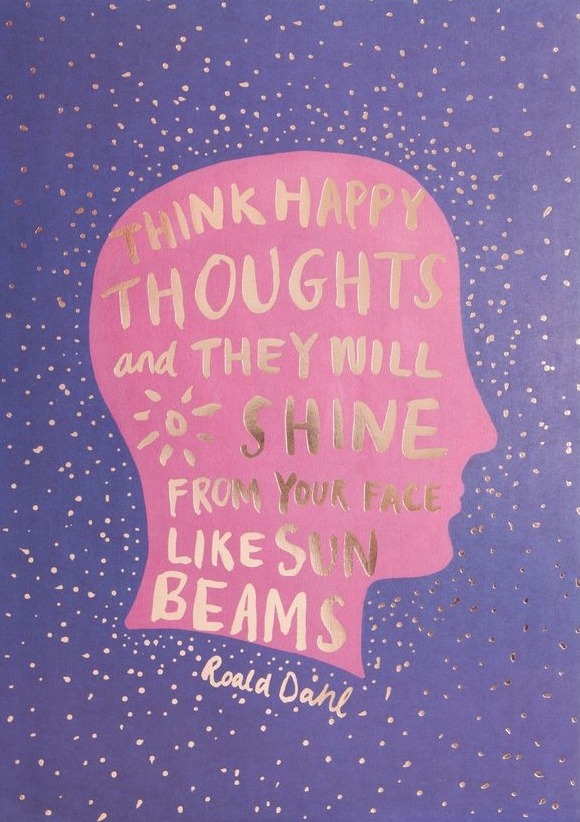 THINK HAPPY
THOUGHTS
and THEY WILL
SHINE
FROM YOUR FACE
LIKE SUN
BEAMS
Roald Dahl